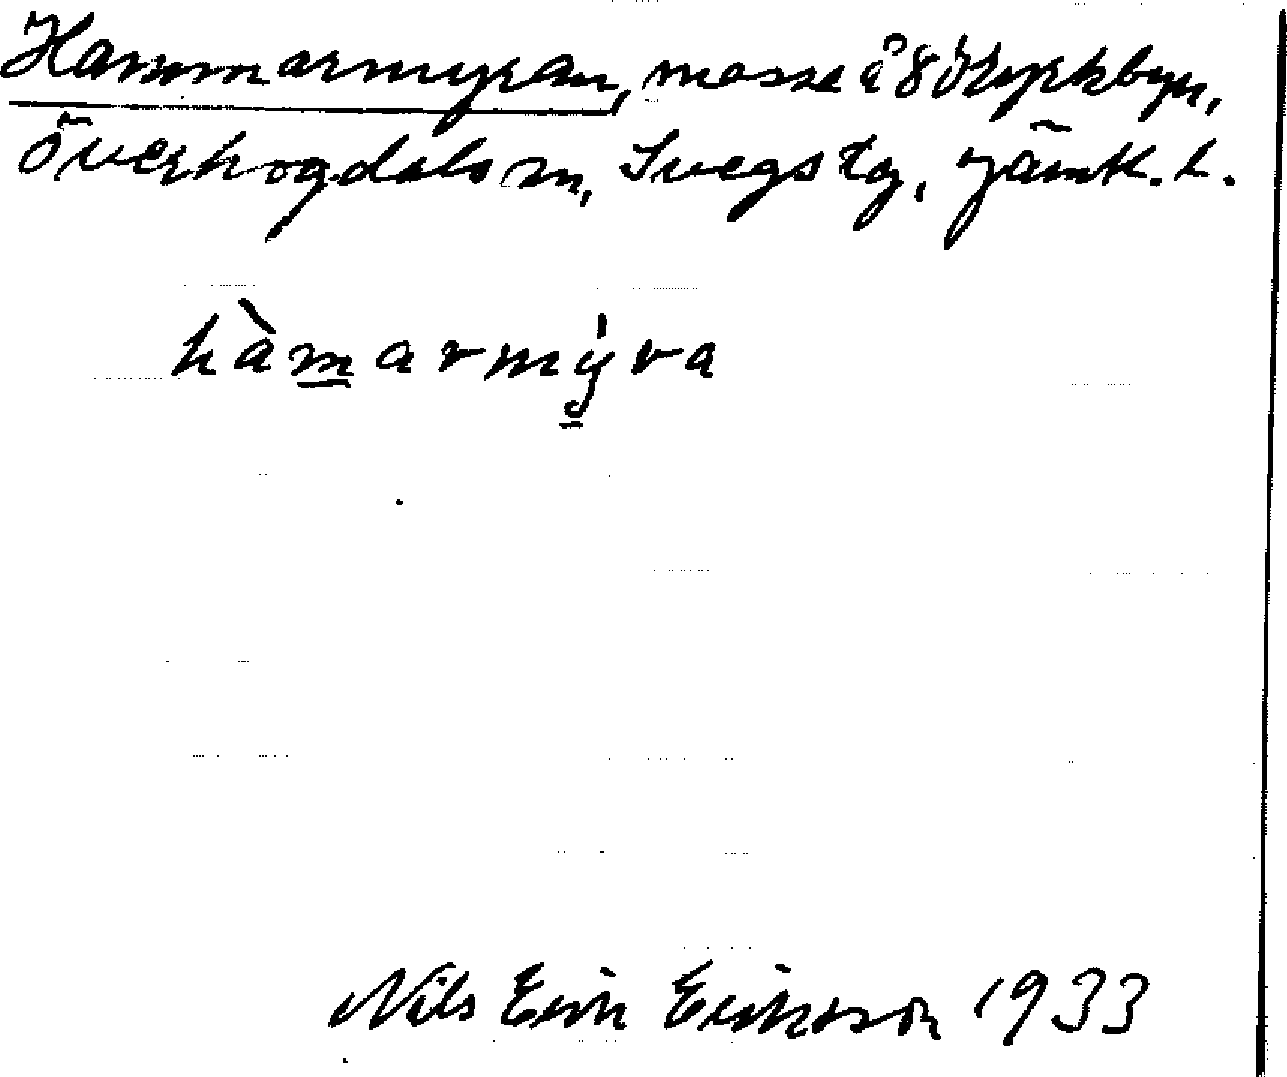 Hammarmyran, mosse å 8 Ö Kyrkbyn,
Överhogdals sn, Svegs tg, Jämtl. l.
hàmarmýra
Nils Erik Eriksson 1933